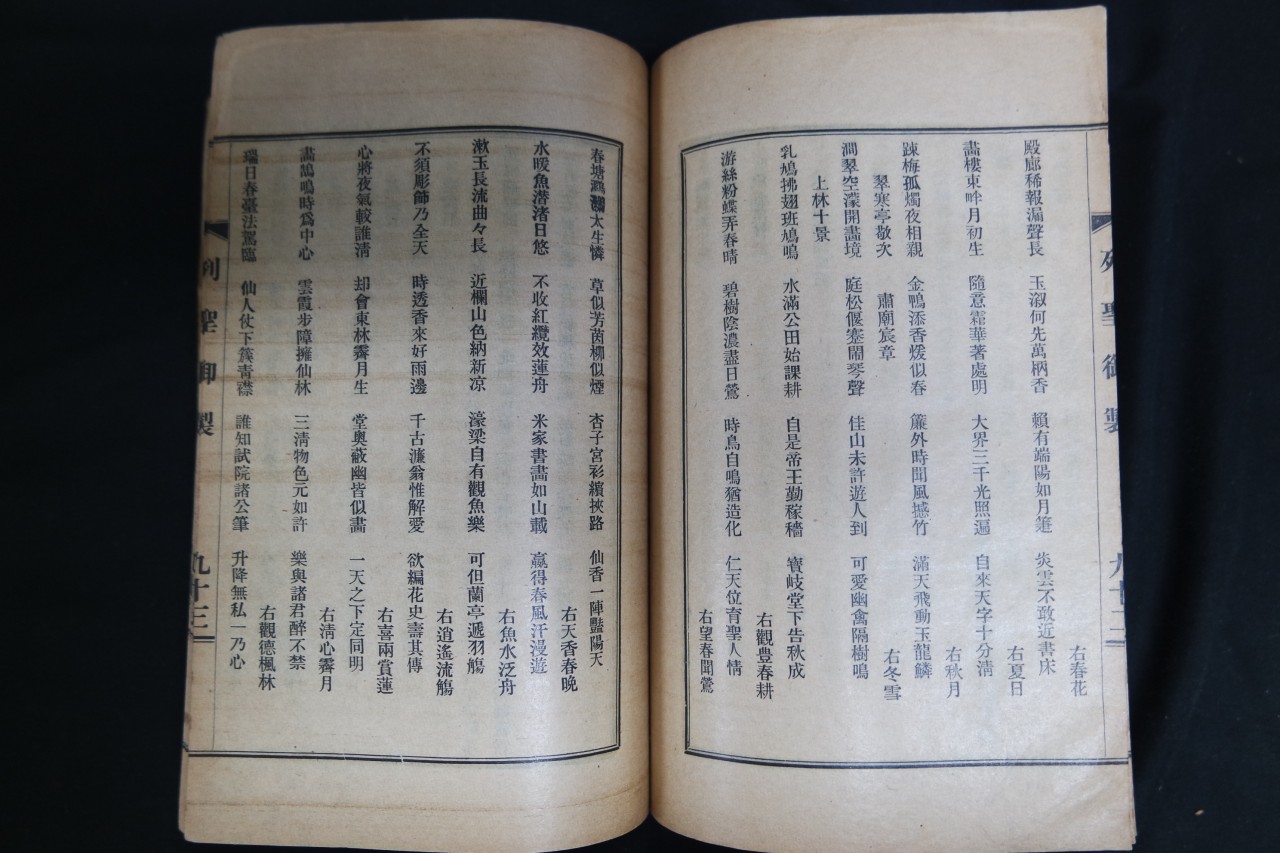 右春花
殿廊稀報漏聲長 玉溆何先萬柄香 賴有端陽如月箑 炎雲不敢近書床
右夏日
畵樓東畔月初生 隨意霜華著處明 大界三千光照遍 自來天字十分淸
右秋月
踈梅孤燭夜相親 金鴨添香煖似春 簾外時聞風撼竹 滿天飛動玉龍鱗
右冬雪
翠寒亭敬次 肅廟宸章
澗翠空濛開畵境 庭松偃蹇閙琴聲 佳山未許遊人到 可愛幽禽隔樹鳴
上林十景
乳鳩拂翅班鳩鳴 水滿公田始課耕 自是帝王勤稼穡 寶岐堂下告秋成
右觀豊春耕
游絲粉蝶弄春晴 碧樹陰濃盡日鶯 時鳥自鳴猶造化 仁天位育聖人情
右望春聞鶯
列聖御製 九十三
春塘鸂鷘太生憐 草似芳茵柳似煙 杏子宮衫繽挾路 仙香一陣豔陽天
右天香春晩
水暖魚潛渚日悠 不收紅纜效蓮舟 米家書畵如山載 贏得春風汗漫遊
右魚水泛舟
漱玉長流曲々長 近欄山色納新凉 濠梁自有觀魚樂 可但蘭亭遞羽觴
右逍遙流觴
不須彫餙乃全天 時透香來好雨邊 千古濂翁惟解愛 欲編花史壽其傳
右喜兩賞蓮
心將夜氣較誰淸 却會東林霽月生 堂奧蔵幽皆似畵 一天之下定同明
右淸心霽月
畵鵠鳴時爲中心 雲霞步障擁仙林 三淸物色元如許 樂與諸君醉不禁
右觀德楓林
瑞日春臺法駕臨 仙人仗下簇靑襟 誰知試院諸公筆 升降無私一乃心
列聖御製 九十三